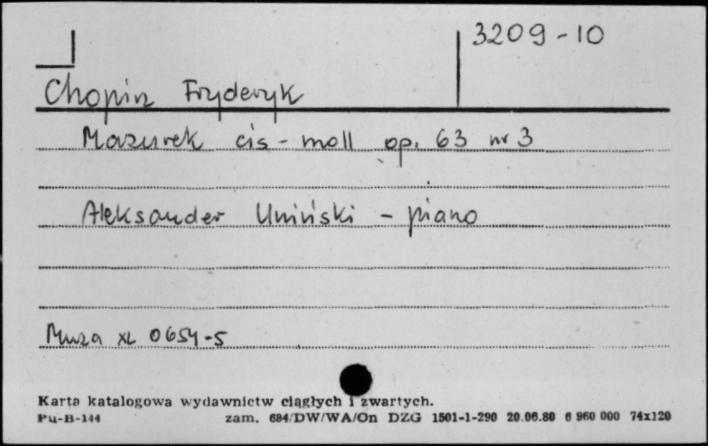 3209-10
Chopin Fryderyk
Mazurek cis-moll op. 63 nr 3
Aleksander Uniński - piano
Muza XL 0654-5
Karta katalogowa wydawnictw ciągłych i zwartych.
Pu-B-144 zam. 684/DW/WA/On DZG 1501-1-290 20.06.80 6 960 000 74x120